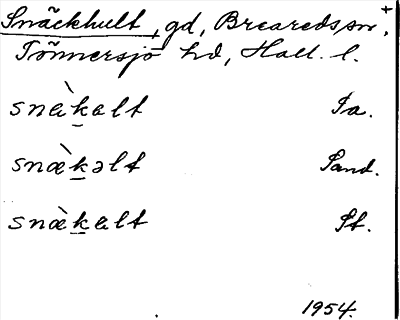 Snäckhult, gd, Breareds sn, +
Tönnersjö hd, Hall. l.
snæ̀k̲alt Ia.
snæ̀k̲əlt Sand.
snæ̀k̲alt St.
1954.